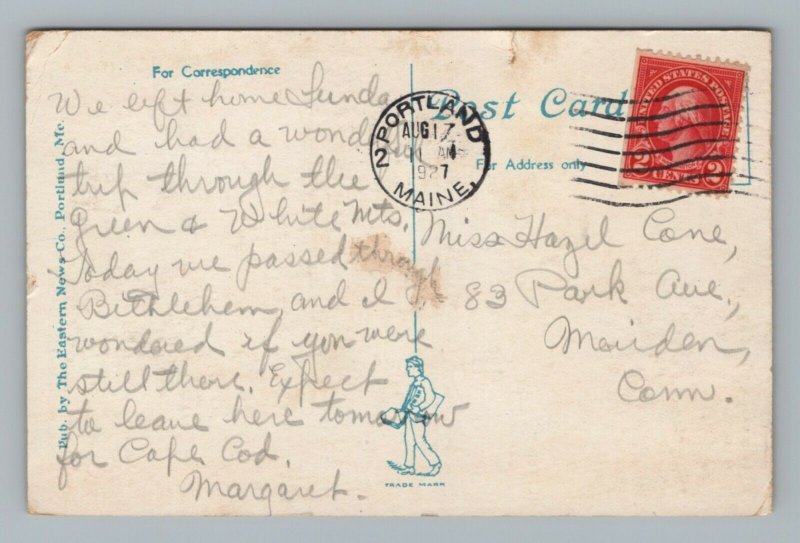 For Correspondence
Post Card
For Address only
Pub. by The Eastern News Co., Portland, Me.
We left home Sunday
and had a wonderful
trip through the
Green & White Mts.
Today we passed through
Bethlehem and I
wondered if you were
still there. Expect
to leave here tomorrow
for Cape Cod.
Margaret.
PORTLAND
2
AUG 17
AM
1927
MAINE.
UNITED STATES POSTAGE
2 CENTS 2
Miss Hazel Cone,
83 Park Ave.,
Meriden,
Conn.
TRADE MARK